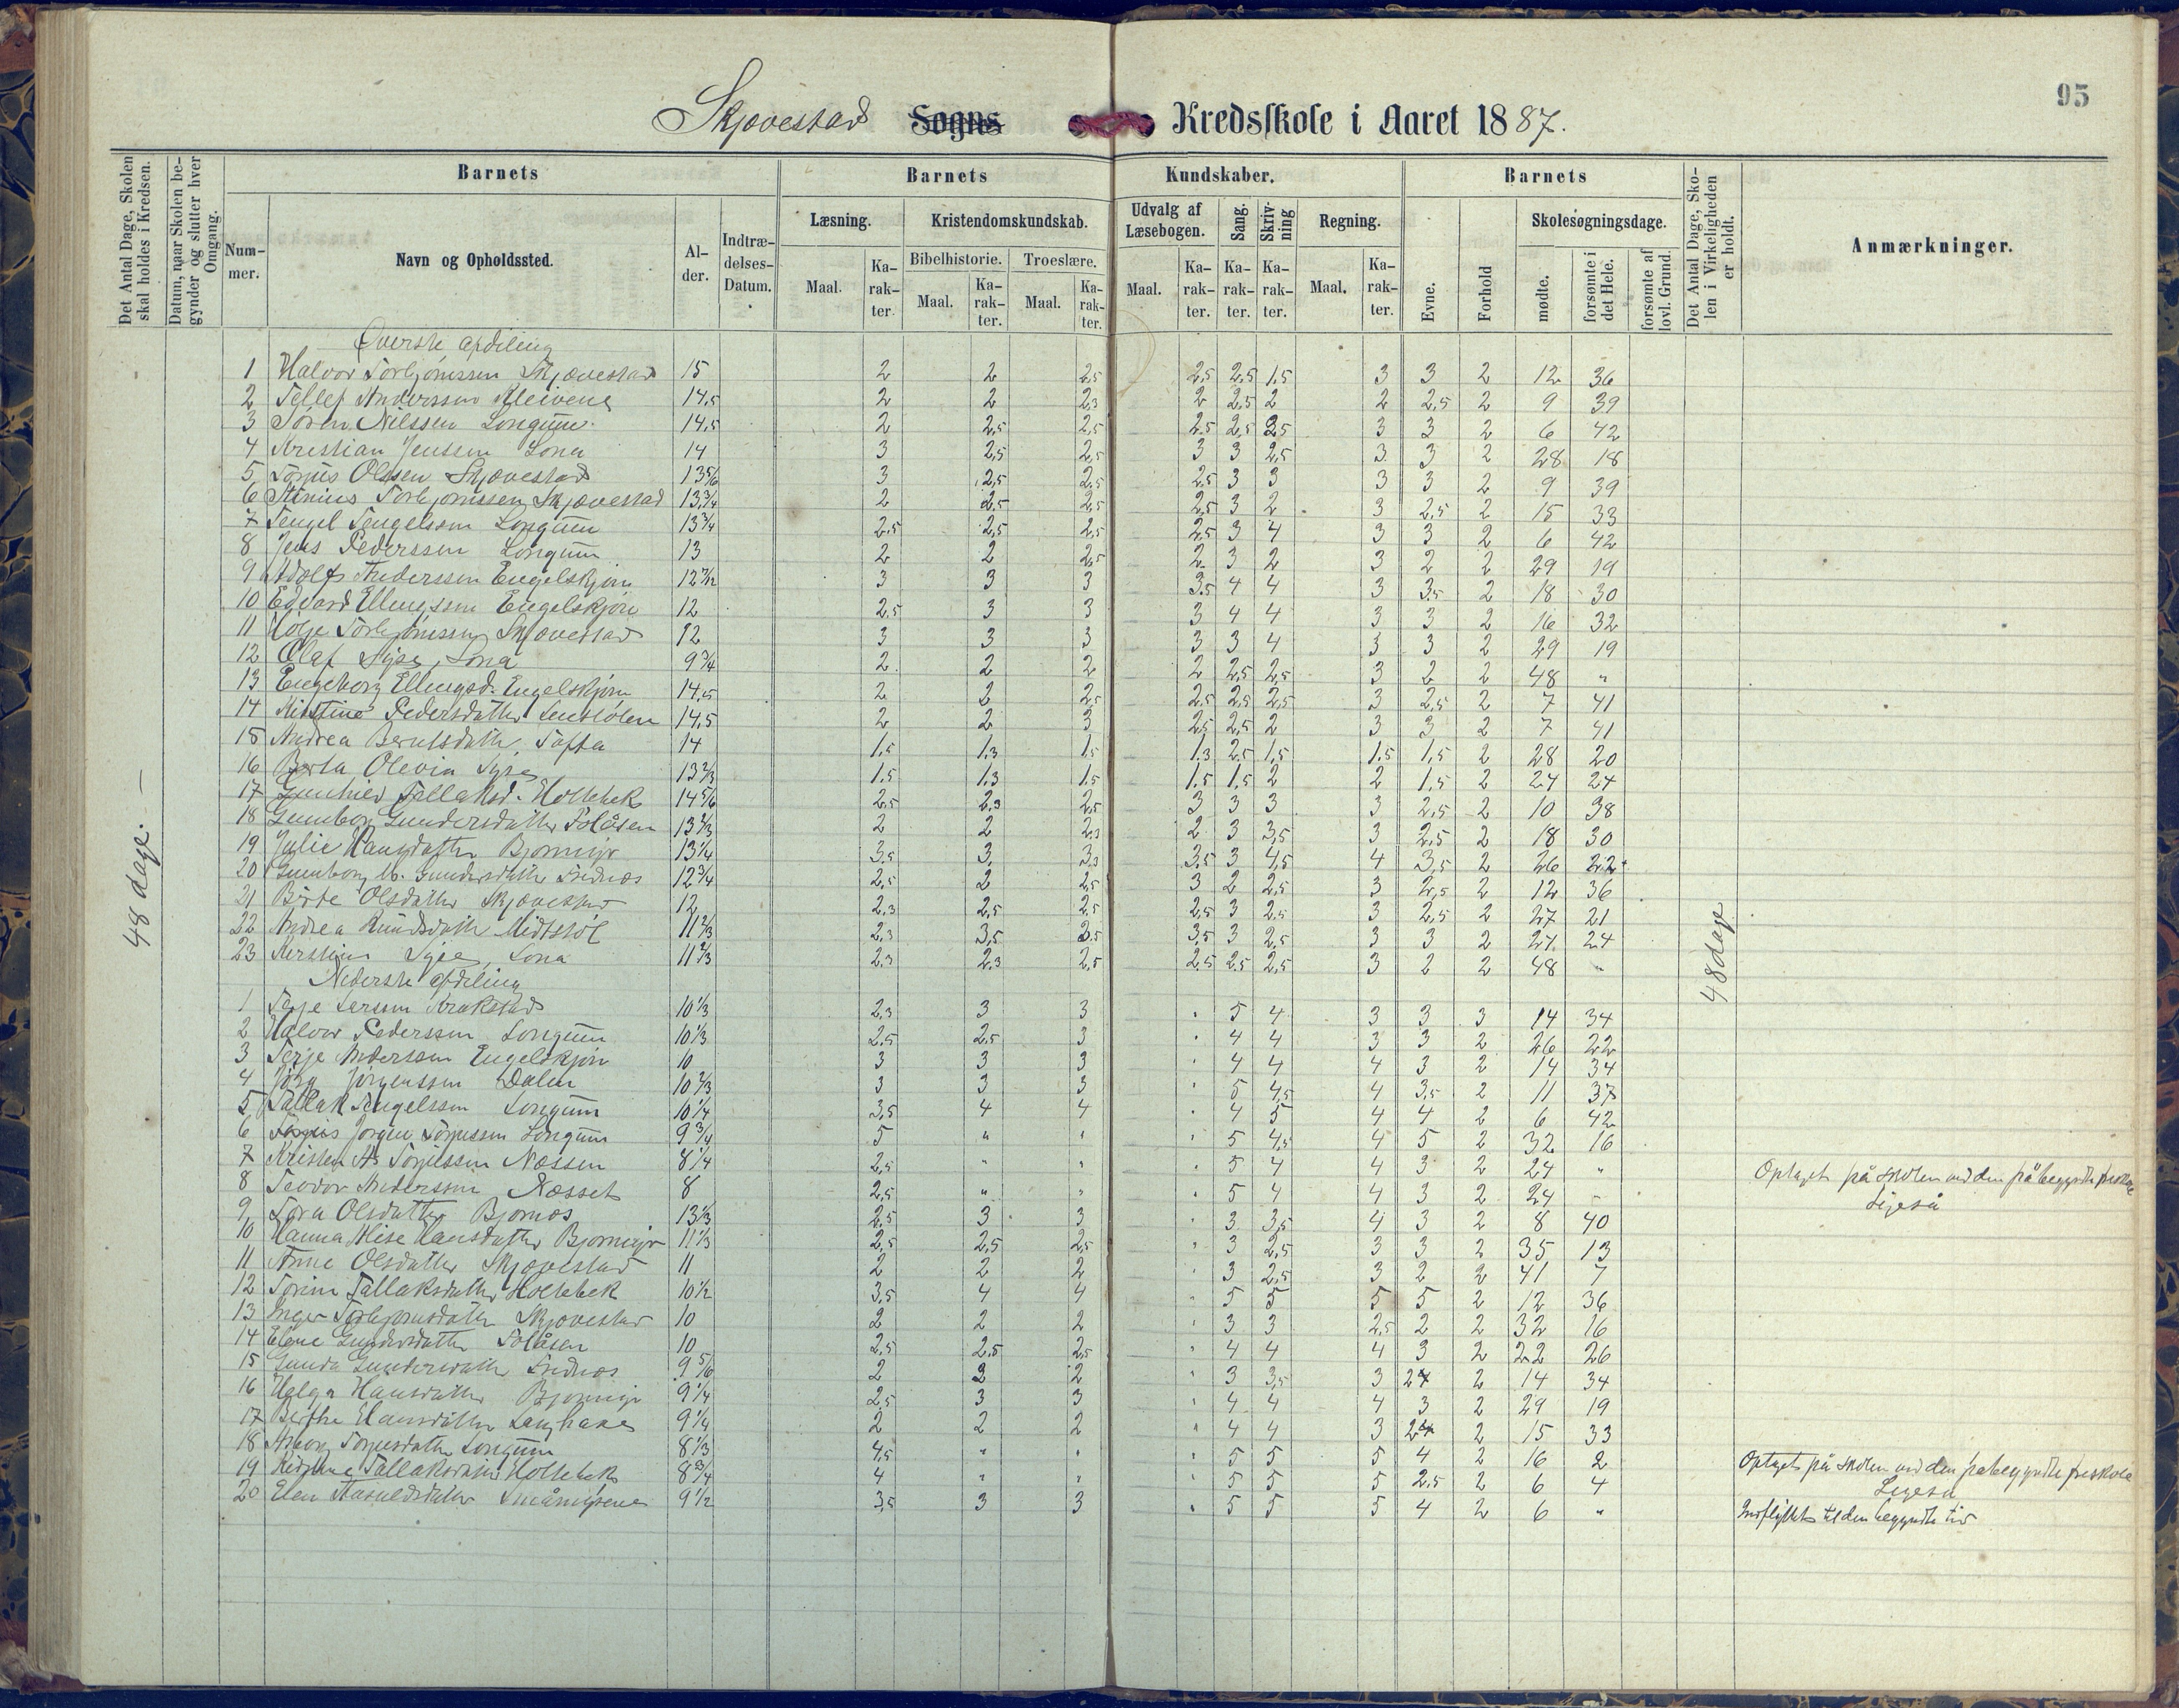 95
Skjævestad Sogns Kredsskole i Aaret 1887.
Det Antal Dage, Skolen skal holdes i Kredsen.
Datum, naar Skolen begynder og slutter hver Omgang.
Barnets
Nummer.
Navn og Opholdssted.
Alder.
Indtrædelses-Datum.
Barnets Kundskaber.
Læsning.
Maal.
Karakter.
Kristendomskundskab.
Bibelhistorie.
Maal.
Karakter.
Troeslære.
Maal.
Karakter.
Udvalg af Læsebogen.
Maal.
Karakter.
Sang.
Karakter.
Skrivning
Karakter.
Regning.
Maal.
Karakter.
Barnets
Evne.
Forhold
Skolesøgningsdage.
mødte.
forsømte i det Hele.
forsømte af lovl. Grund.
Det Antal Dage, Skolen i Virkeligheden er holdt.
Anmærkninger.
48 dage. —
48 dage
Øverste afdeling
1 Halvor Torbjørnssen Skjævestad 15 2 2 2,5 2,5 2,5 1,5 3 3 2 12 36
2 Tellef Anderssen Kleivene 14,5 2 2 2,3 2 2,5 2 2 2,5 2 9 39
3 Søren Nilssen Longum 14,5 2 2,5 2,5 2,5 2,5 2,5 3 3 2 6 42
4 Kristian Jenssen Lona 14 3 2,5 2,5 3 3 2,5 3 3 2 28 18
5 Torjus Olssen Skjævestad 13 5/6 3 2,5 2,5 2,5 3 3 3 3 2 9 39
6 Torbjørnssen Skjævestad 13 3/4 2 2,5 2,5 2,5 3 2 3 2,5 2 15 33
7 Tengel Tengelssen Longum 13 3/4 2,5 2,5 2,5 2,5 3 4 3 3 2 6 42
8 Jens Pederssen Longum 13 2 2 2,5 2 3 2 3 2 2 29 19
9 Adolf Anderssen Engelskjøn 12 3 3 3 3,5 4 4 3 3,5 2 18 30
10 Edvard Ellingssen Engelskjøn 12 2,5 3 3 3 4 4 3 3 2 16 32
11 Holje Torbjørnssen Skjævestad 12 3 3 3 3 3 4 3 3 2 29 19
12 Olaf Syse, Lona 9 3/4 2 2 2 2 2,5 2,5 3 2 2 48 "
13 Engeborg Ellingsd. Engelskjøn 14,5 2 2 2,5 2,5 2,5 2,5 3 2,5 2 7 41
14 Pedersdatter 14,5 2 2 3 2,5 2,5 2 3 3 2 7 41
15 Andrea Berntsdatter, Tofta 14 1,5 1,3 1,5 1,3 2,5 1,5 1,5 1,5 2 28 20
16 Berta Olevia Syse 13 2/3 1,5 1,3 1,5 1,5 1,5 2 2 1,5 2 24 24
17 Gunhild Tallaksd. Holtebek 14 5/6 2,5 2,3 2,5 3 3 3 3 2,5 2 10 38
18 Gunborg Gundersdatter Solåsen 13 2/3 2 2 2,3 2 3 3,5 3 2,5 2 18 30
19 Julie Hansdatter Bjørnmyr 13 1/4 3,5 3, 3,3 3,5 3 4,5 4 3,5 2 26 22
20 Gunborg M. Gundersdatter 12 3/4 2,5 2 2,5 3 2 2,5 3 2,5 2 12 36
21 Birte Olsdatter Skjævestad 12 2,3 2,5 2,5 2,5 3 2,5 3 2,5 2 27 21
22 Andrea Knudsdatter Midtstøl 11 2/3 2,3 3,5 2,5 3,5 3 2,5 3 3 2 24 24
23 Kirstine Syse, Lona 11 2/3 2,3 2,3 2,5 2,5 2,5 2,5 3 2 2 48 "
Nederste afdeling
1 Terje Larssen Krakstad 10 1/3 2,3 3 3 " 5 4 3 3 3 14 34
2 Halvor Pederssen Longum 10 1/3 2,5 2,5 3 " 4 4 3 3 2 26 22
3 Terje Anderssen Engelskjøn 10 3 3 3 " 4 4 4 3 2 14 34
4 Jørg Jørgenssen Dalen 10 2/3 3 3 3 " 5 4,5 4 3,5 2 11 37
5 Tallak Tengelssen Longum 10 1/4 3,5 4 4 " 4 5 4 4 2 6 42
6 Jørgen Torjussen Longum 9 3/4 5 " " " 5 4,5 4 5 2 32 16
7 Kristen As Torjussen Næssen 8 1/4 2,5 " " " 5 4 4 3 2 24 " Optaget på skolen ved den påbegyndte
8 Teodor Anderssen Næsset 8 2,5 " " " 5 4 4 3 2 24 " Ligeså
9 Tora Olsdatter Bjørnos 13 1/3 2,5 3 3 " 3 3,5 4 3 2 8 40
10 Hanna Alise Hansdatter Bjørnmyr 11 1/3 2,5 2,5 2,5 " 3 2,5 3 3 2 35 13
11 Anne Olsdatter Skjævestad 11 2 2 2 " 3 2,5 3 2 2 41 7
12 Torine Tallaksdatter Holtebek 10 1/2 3,5 4 4 " 5 5 5 5 2 12 36
13 Inger Torbjørnsdatter Skjævestad 10 2 2 2 " 3 3 2,5 2 2 32 16
14 Gundersdatter Solåsen 10 2,5 2,5 2,5 " 4 4 4 3 2 22 26
15 Gunda Gundersdatter 9 5/6 2 2 2 " 3 3,5 3 2 2 14 34
16 Helga Hansdatter Bjørnmyr 9 1/4 2,5 3 3 " 4 4 4 3 2 29 19
17 Berthe Hansdatter Langhake 9 1/4 2 2 2 " 4 4 3 2 2 15 33
18 Torjusdatter Longum 8 1/3 4,5 " " " 5 5 5 4 2 16 2 Optaget på skolen ved den påbegyndte
19 Tallaksdatter Holtebek 8 3/4 4 " " " 5 5 5 2,5 2 6 4 Ligeså
20 Elen 9 1/2 3,5 3 3 " 5 5 5 4 2 6 " Indflyttet til den begyndte tid